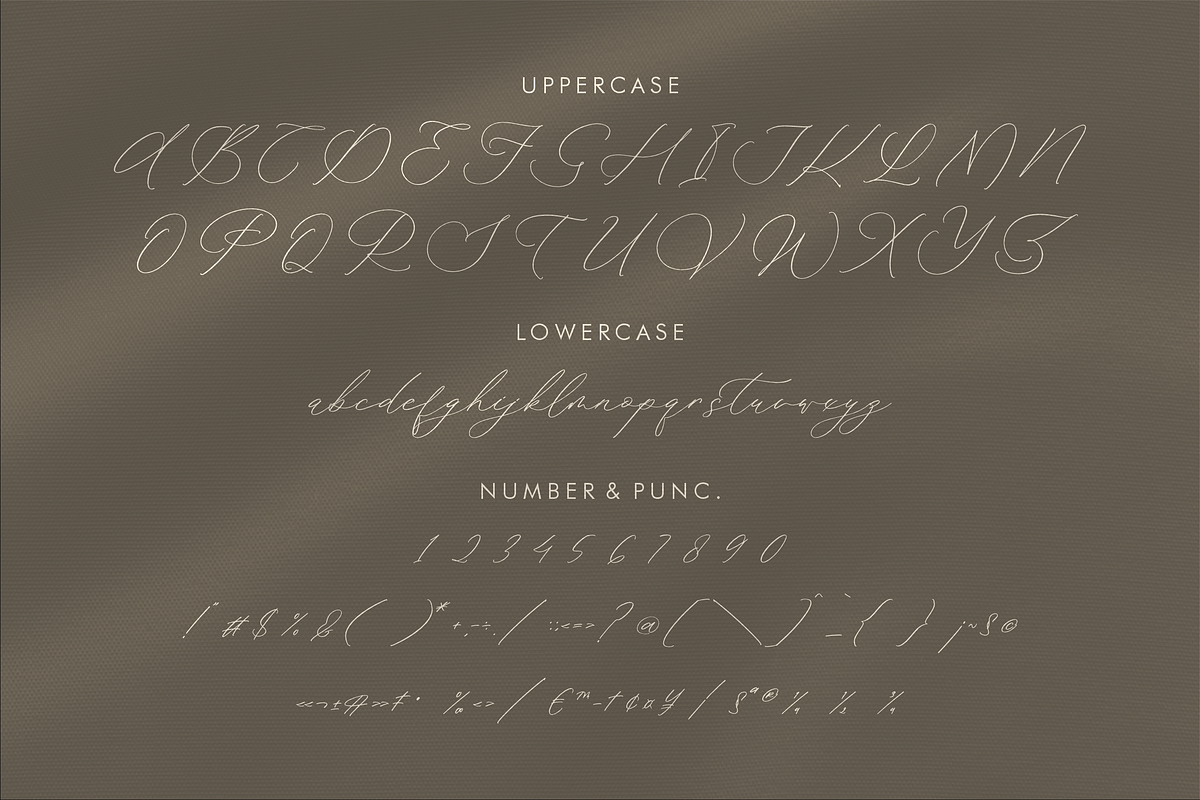 UPPERCASE
ABCDEFGHIJKLMN
OPQRSTUVWXYZ
LOWERCASE
abcdefghijklmnopqrstuvwxyz
NUMBER & PUNC.
1 2 3 4 5 6 7 8 9 0
! " # $ % & ( ) * + , - ÷ . / : ; < = > ? @ [ \ ] ^ ` _ { } ¡ ~ § ©
« ¬ ± » ‡ • ‰ < > / € ™ – † ¢ ¤ ¥ / § ª ® ¼ ½ ¾